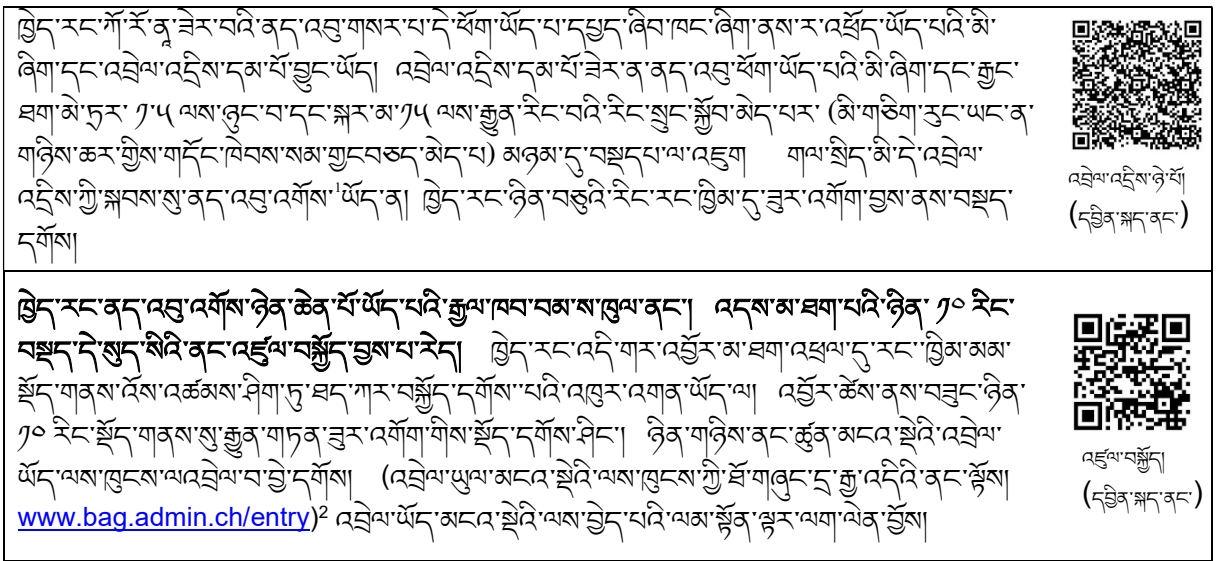 ཁྱེད་རང་ཀོ་རོ་ནཱ་ཟེར་བའི་ནད་འབུ་གསར་པ་དེ་ཕོག་ཡོད་པ་དཔྱད་ཞིབ་ཁང་ཞིག་ནས་ར་འཕྲོད་ཡོད་པའི་མི་
ཞིག་དང་འབྲེལ་འདྲིས་དམ་པོ་བྱུང་ཡོད། འབྲེལ་འདྲིས་དམ་པོ་ཟེར་ན་ནད་འབུ་ཕོག་ཡོད་པའི་མི་ཞིག་དང་རྒྱང་
ཐག་མེ་ཏར་ ༡.༥ ལས་ཉུང་བ་དང་སྐར་མ་༡༥ ལས་རྒྱུན་རིང་བའི་རིང་སྲུང་སྐྱོབ་མེད་པར་ (མི་གཅིག་རུང་ཡང་ན་
གཉིས་ཆར་གྱིས་གདོང་ཁེབས་སམ་གྱངབཅད་མེད་པ) མཉམ་དུ་བསྡདཔ་ལ་འཇུག གལ་སྲིད་མི་དེ་འབྲེལ་
འདྲིས་ཀྱི་སྐབས་སུ་ནད་འབུ་འགོས་¹ཡོད་ན། ཁྱེད་རང་ཉིན་བཅུའི་རིང་རང་ཁྱིམ་དུ་ཟུར་འགོག་བྱས་ནས་བསྡད་
དགོས།
འབྲེལ་འདྲིས་ཉེ་པོ།
(དབྱིན་སྐད་ནང་)
ཁྱེད་རང་ནད་འབུ་འགོས་ཉེན་ཆེན་པོ་ཡོད་པའི་རྒྱལ་ཁབ་བམ་ས་ཁུལ་ནང་། འདས་མ་ཐག་པའི་ཉིན་ ༡༠ རིང་
བསྡད་དེ་སུད་སིའི་ནང་འཛུལ་བསྐྱོད་བྱས་པ་རེད། ཁྱེད་རང་འདི་གར་འབྱོར་མ་ཐག་འཕྲལ་དུ་རང་་ཁྱིམ་མམ་
སྡོད་གནས་འོས་འཚམས་ཤིག་ཏུ་ཐད་ཀར་བསྐྱོད་དགོས་་པའི་འཁུར་འགན་ཡོད་ལ། འབྱོར་ཚེས་ནས་བཟུང་ཉིན་
༡༠ རིང་སྡོད་གནས་སུ་རྒྱུན་གཏན་ཟུར་འགོག་གིས་སྡོད་དགོས་ཤིང་། ཉིན་གཉིས་ནང་ཚུན་མངའ་སྡེའི་འབྲེལ་
ཡོད་ལས་ཁུངས་ལའབྲེལ་བ་བྱེ་དགོས། (འབྲེལ་ཡུལ་མངའ་སྡེའི་ལས་ཁུངས་ཀྱི་ཐོ་གཞུང་དྲ་རྒྱ་འདིའི་ནང་ལྟོས།
www.bag.admin.ch/entry)² འབྲེལ་ཡོད་མངའ་སྡེའི་ལས་བྱེད་པའི་ལམ་སྟོན་ལྟར་ལག་ལེན་བྱོས།
འཛུལ་བསྐྱོད།
(དབྱིན་སྐད་ནང་)